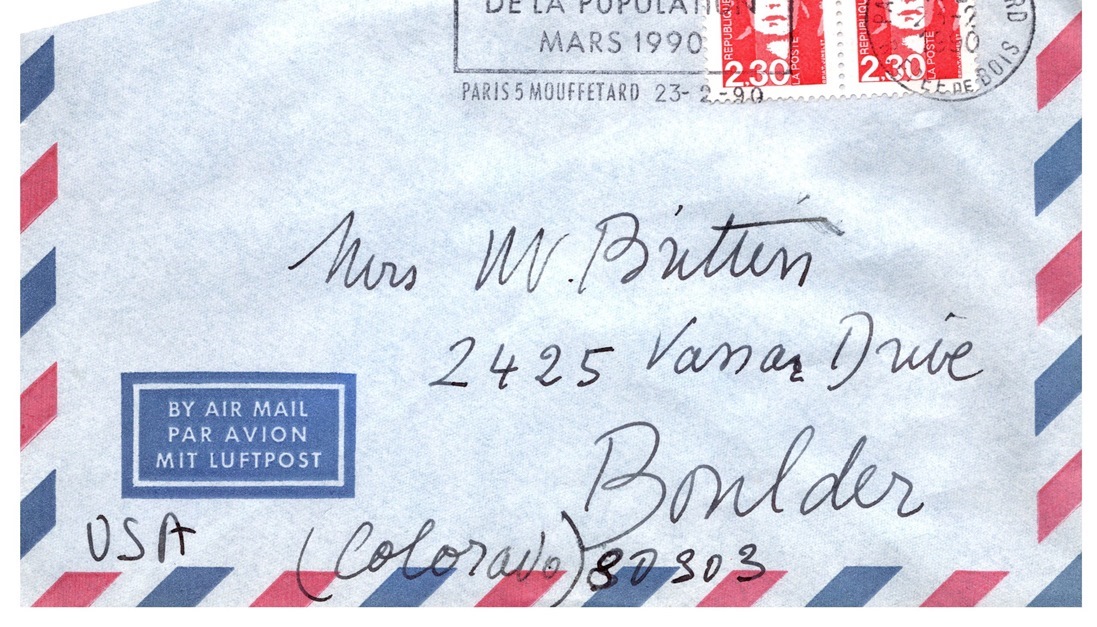 DE LA POPULATION
MARS 1990
PARIS 5 MOUFFETARD 23-2-90
REPUBLIQUE
2.30
LA POSTE
REPUBLIQUE
2.30
LA POSTE
Mrs W. Brittin
2425 Vassar Drive
Boulder
BY AIR MAIL
PAR AVION
MIT LUFTPOST
USA
(Colorado) 80303